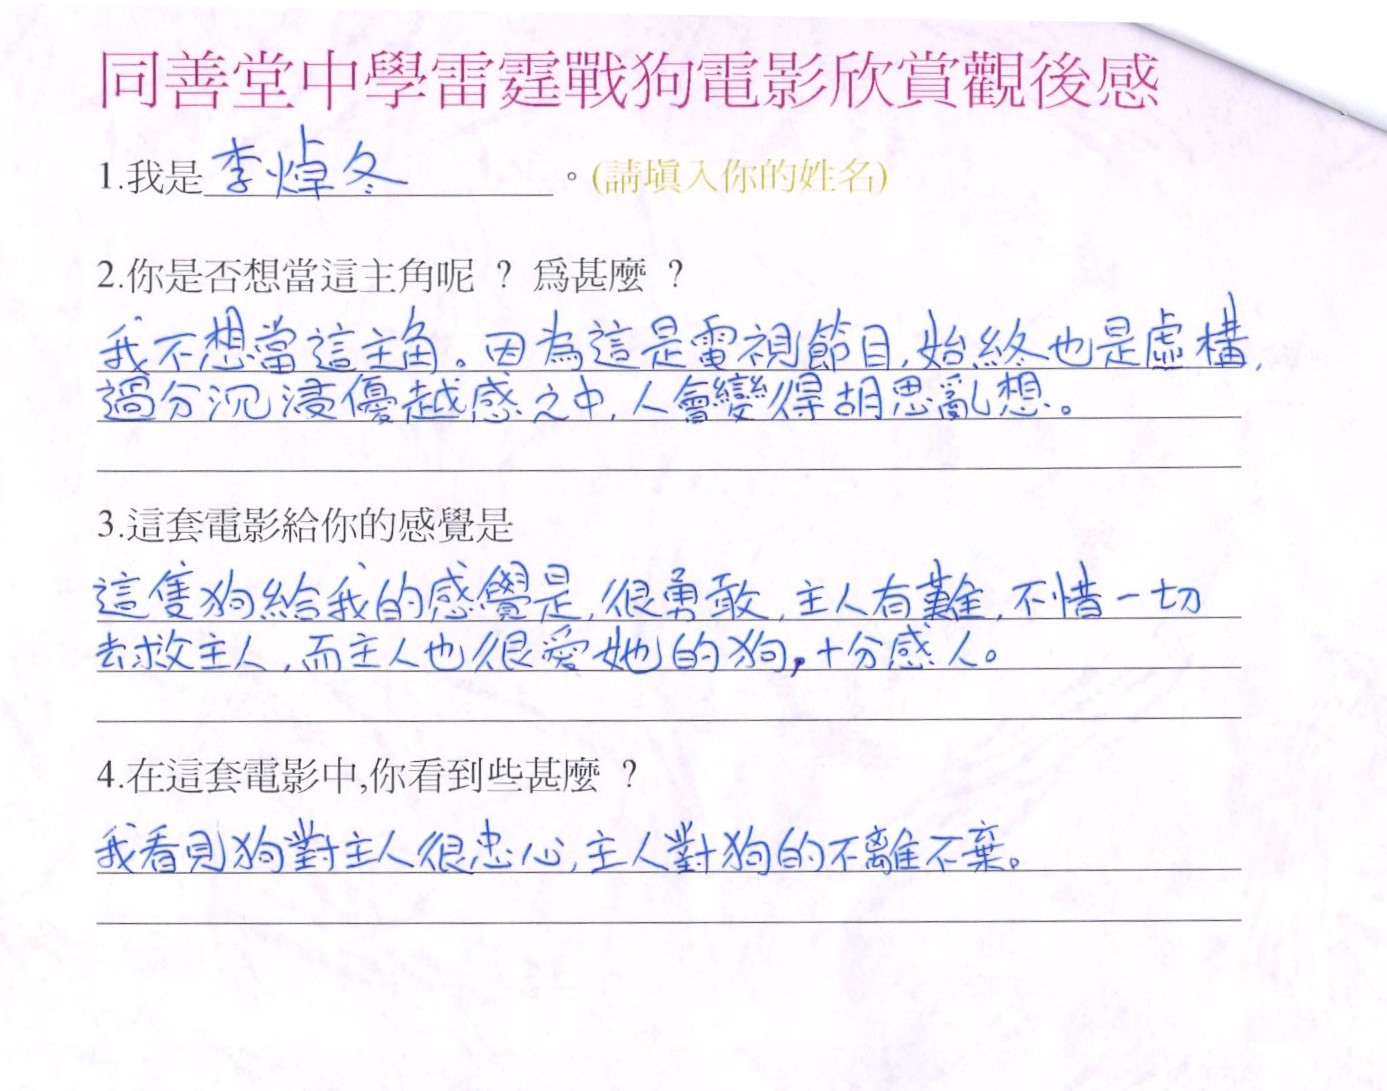 同善堂中學雷霆戰狗電影欣賞觀後感
1.我是李焯冬。(請填入你的姓名)
2.你是否想當這主角呢 ? 爲甚麼 ?
我不想當這主角。因為這是電視節目,始終也是虛構,
過分沉浸優越感之中,人會變得胡思亂想。
3.這套電影給你的感覺是
這隻狗給我的感覺是,很勇敢,主人有難,不惜一切
去救主人,而主人也很愛她的狗,十分感人。
4.在這套電影中,你看到些甚麼 ?
我看見狗對主人很忠心,主人對狗的不離不棄。